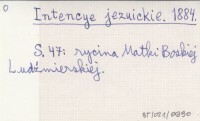 0
Intencye jezuickie. 1884.
S. 47: rycina Matki Boskiej
Ludźmierskiej.